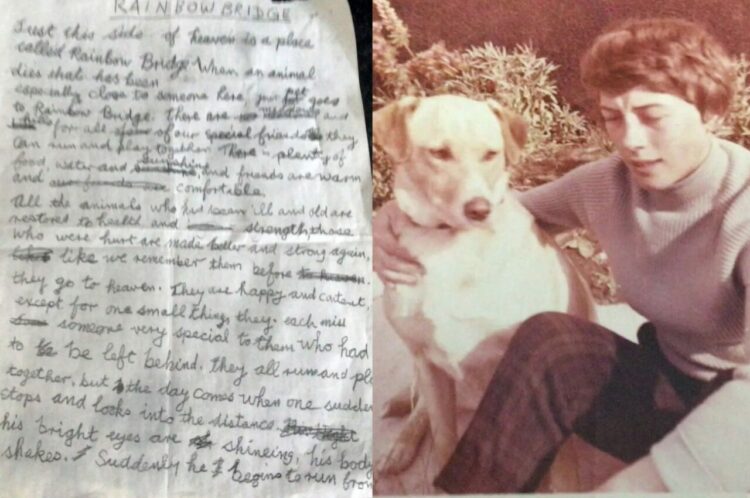 RAINBOW BRIDGE
Just this side of heaven is a place
called Rainbow Bridge. When an animal
dies that has been
especially close to someone here, pet goes
to Rainbow Bridge. There are meadows and
for all of our special friends so they
can run and play together. There is plenty of
food, water and sunshine, and friends are warm
and comfortable.
All the animals who had been ill and old are
restored to health and strength, those
who were hurt are made better and strong again,
like we remember them before
they go to heaven. They are happy and content,
except for one small thing, they each miss
someone very special to them who had
to be left behind. They all run and pl
together, but the day comes when one sudden
stops and looks into the distance.
his bright eyes are shineing, his body
shakes. Suddenly he begins to run from